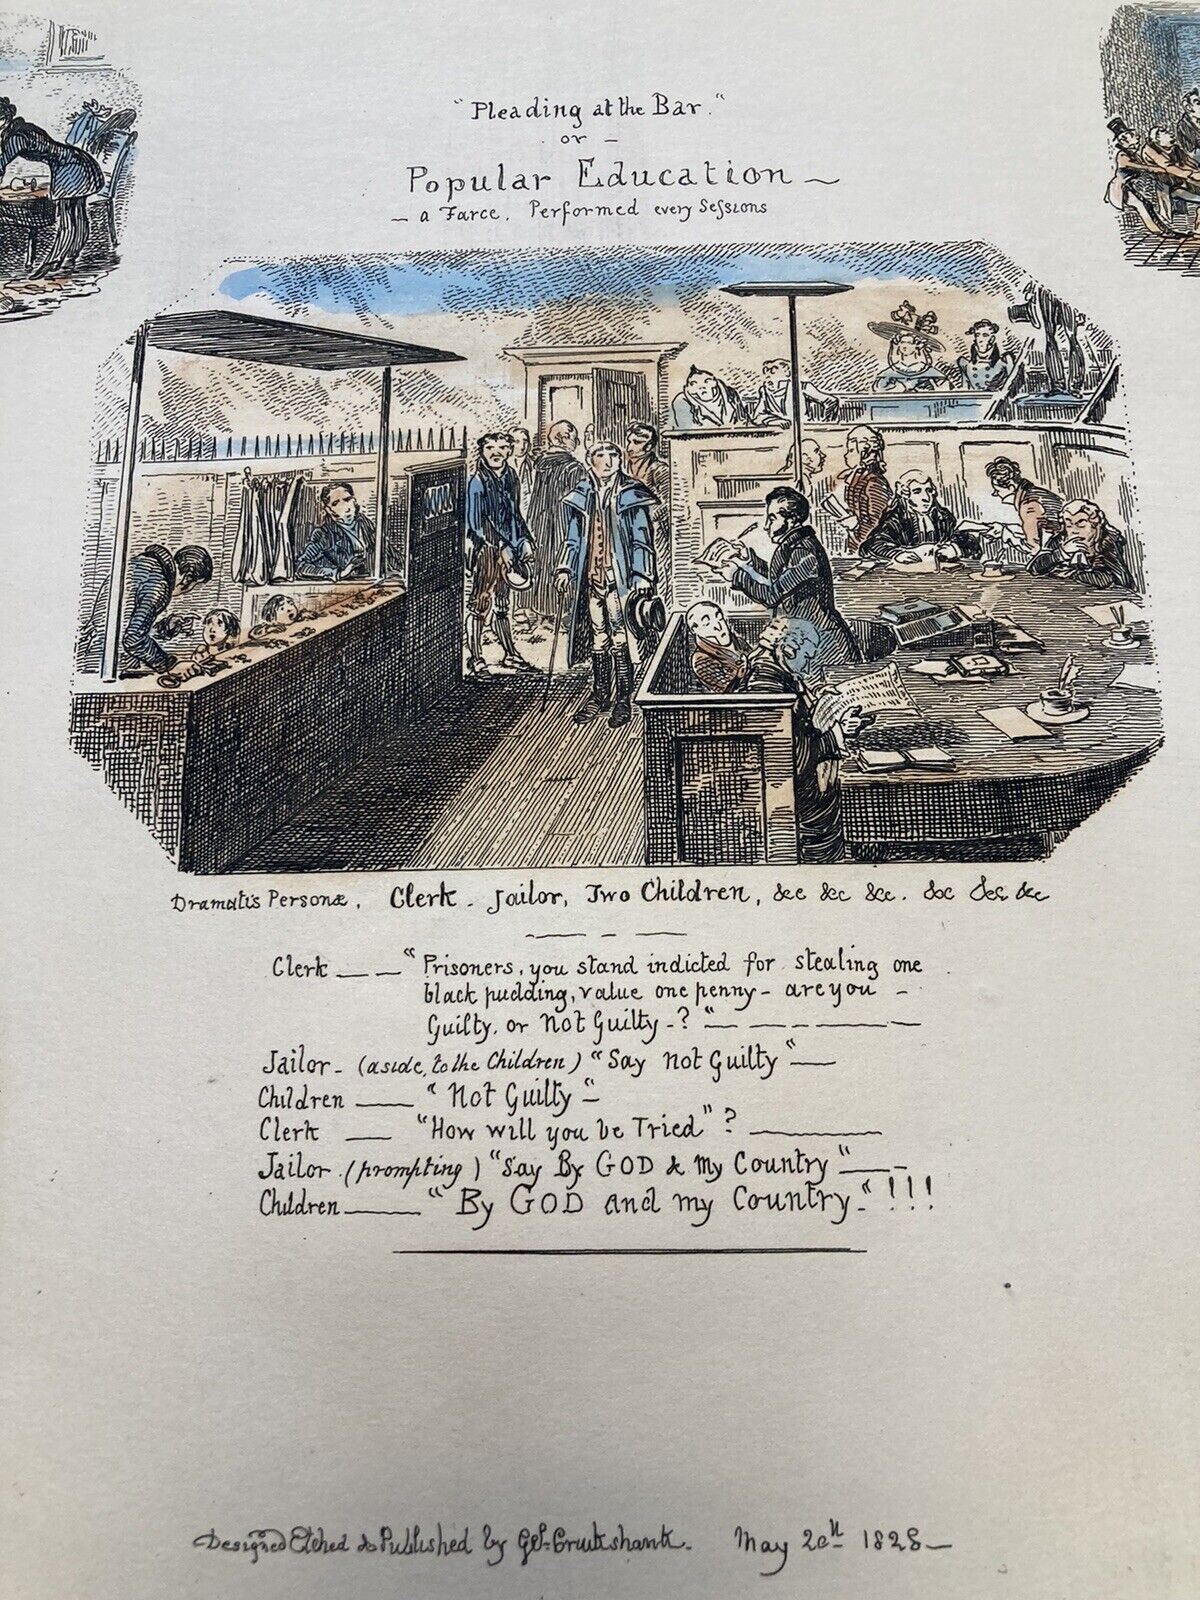 "Pleading at the Bar."
or —
Popular Education —
— a Farce. Performed every Seſsions
Dramatis Personæ. Clerk - Jailor, Two Children, &c &c &c. &c &c &c
Clerk — — "Prisoners, you stand indicted for stealing one
black pudding, value one penny - are you -
Guilty. or Not Guilty -?" — — — —
Jailor - (aside, to the Children) "Say not Guilty" —
Children — "Not Guilty"
Clerk — "How will you be Tried"? —
Jailor (prompting) "Say By GOD & my Country" — -
Children — "By GOD and my Country." !!!
Designed Etched & Published by Geo. Cruikshank. May 20th 1828 —